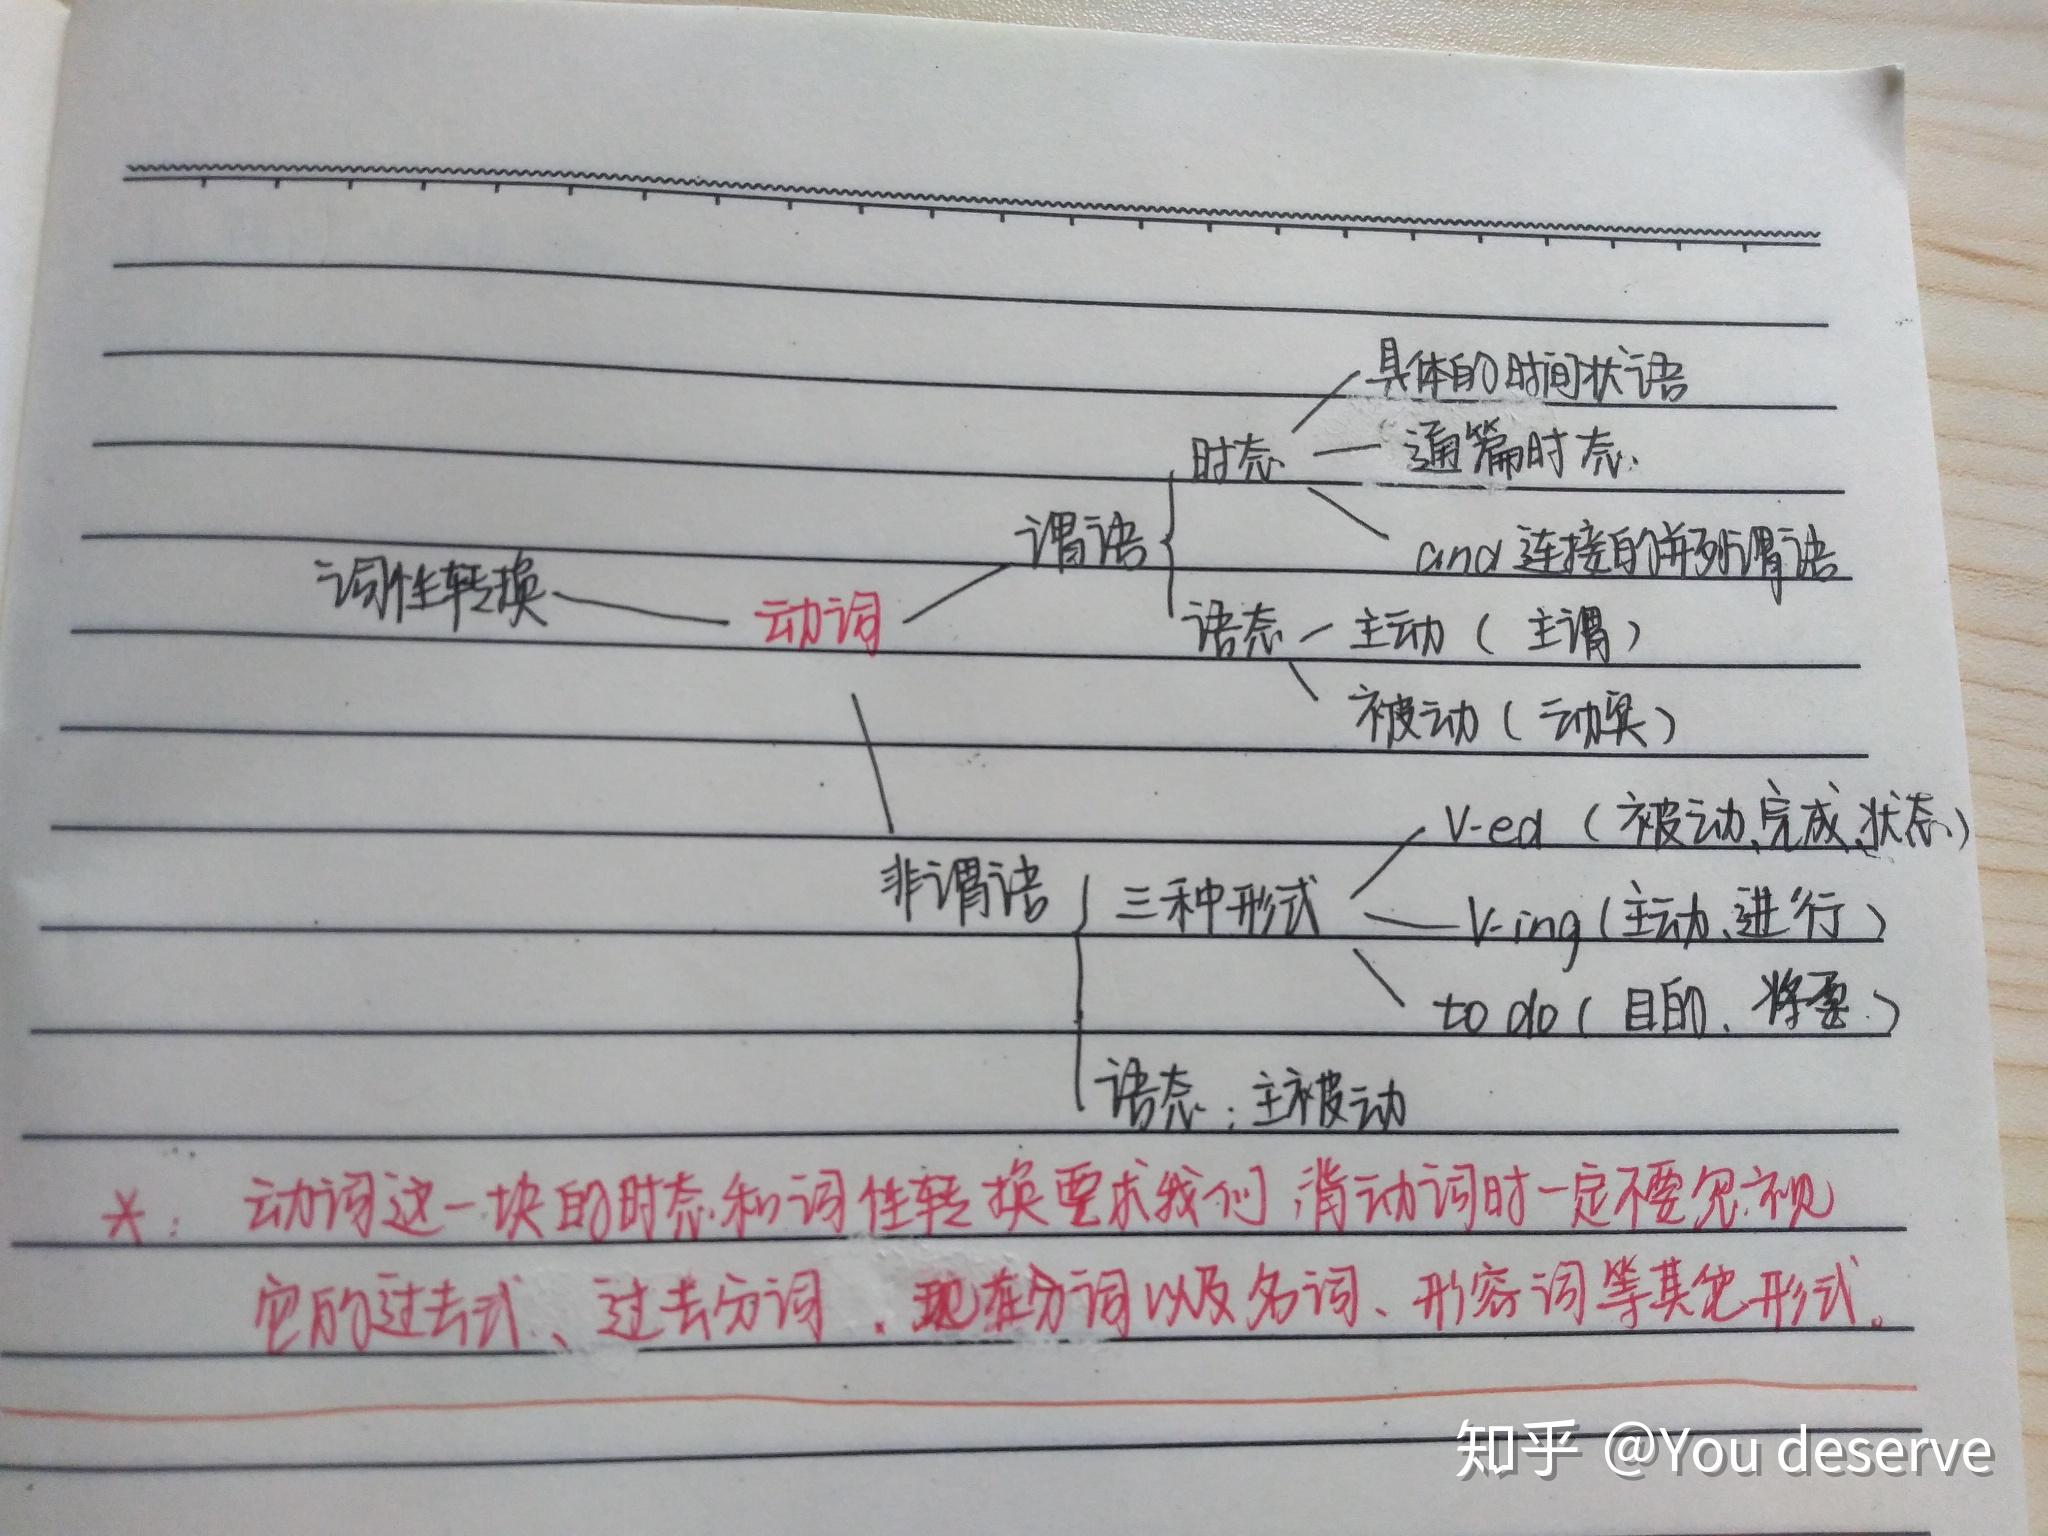 具体的时间状语
时态 通篇时态.
谓语
and连接的并列谓语
词性转换 动词
语态 主动(主谓)
被动(动宾)
V-ed(被动、完成、状态)
非谓语 三种形式
V-ing(主动、进行)
to do(目的、将要)
语态:主被动
*: 动词这一块的时态和词性转换要求我们,背动词时一定不要忽视
它的过去式、过去分词、现在分词以及名词、形容词等其他形式。
知乎 @You deserve